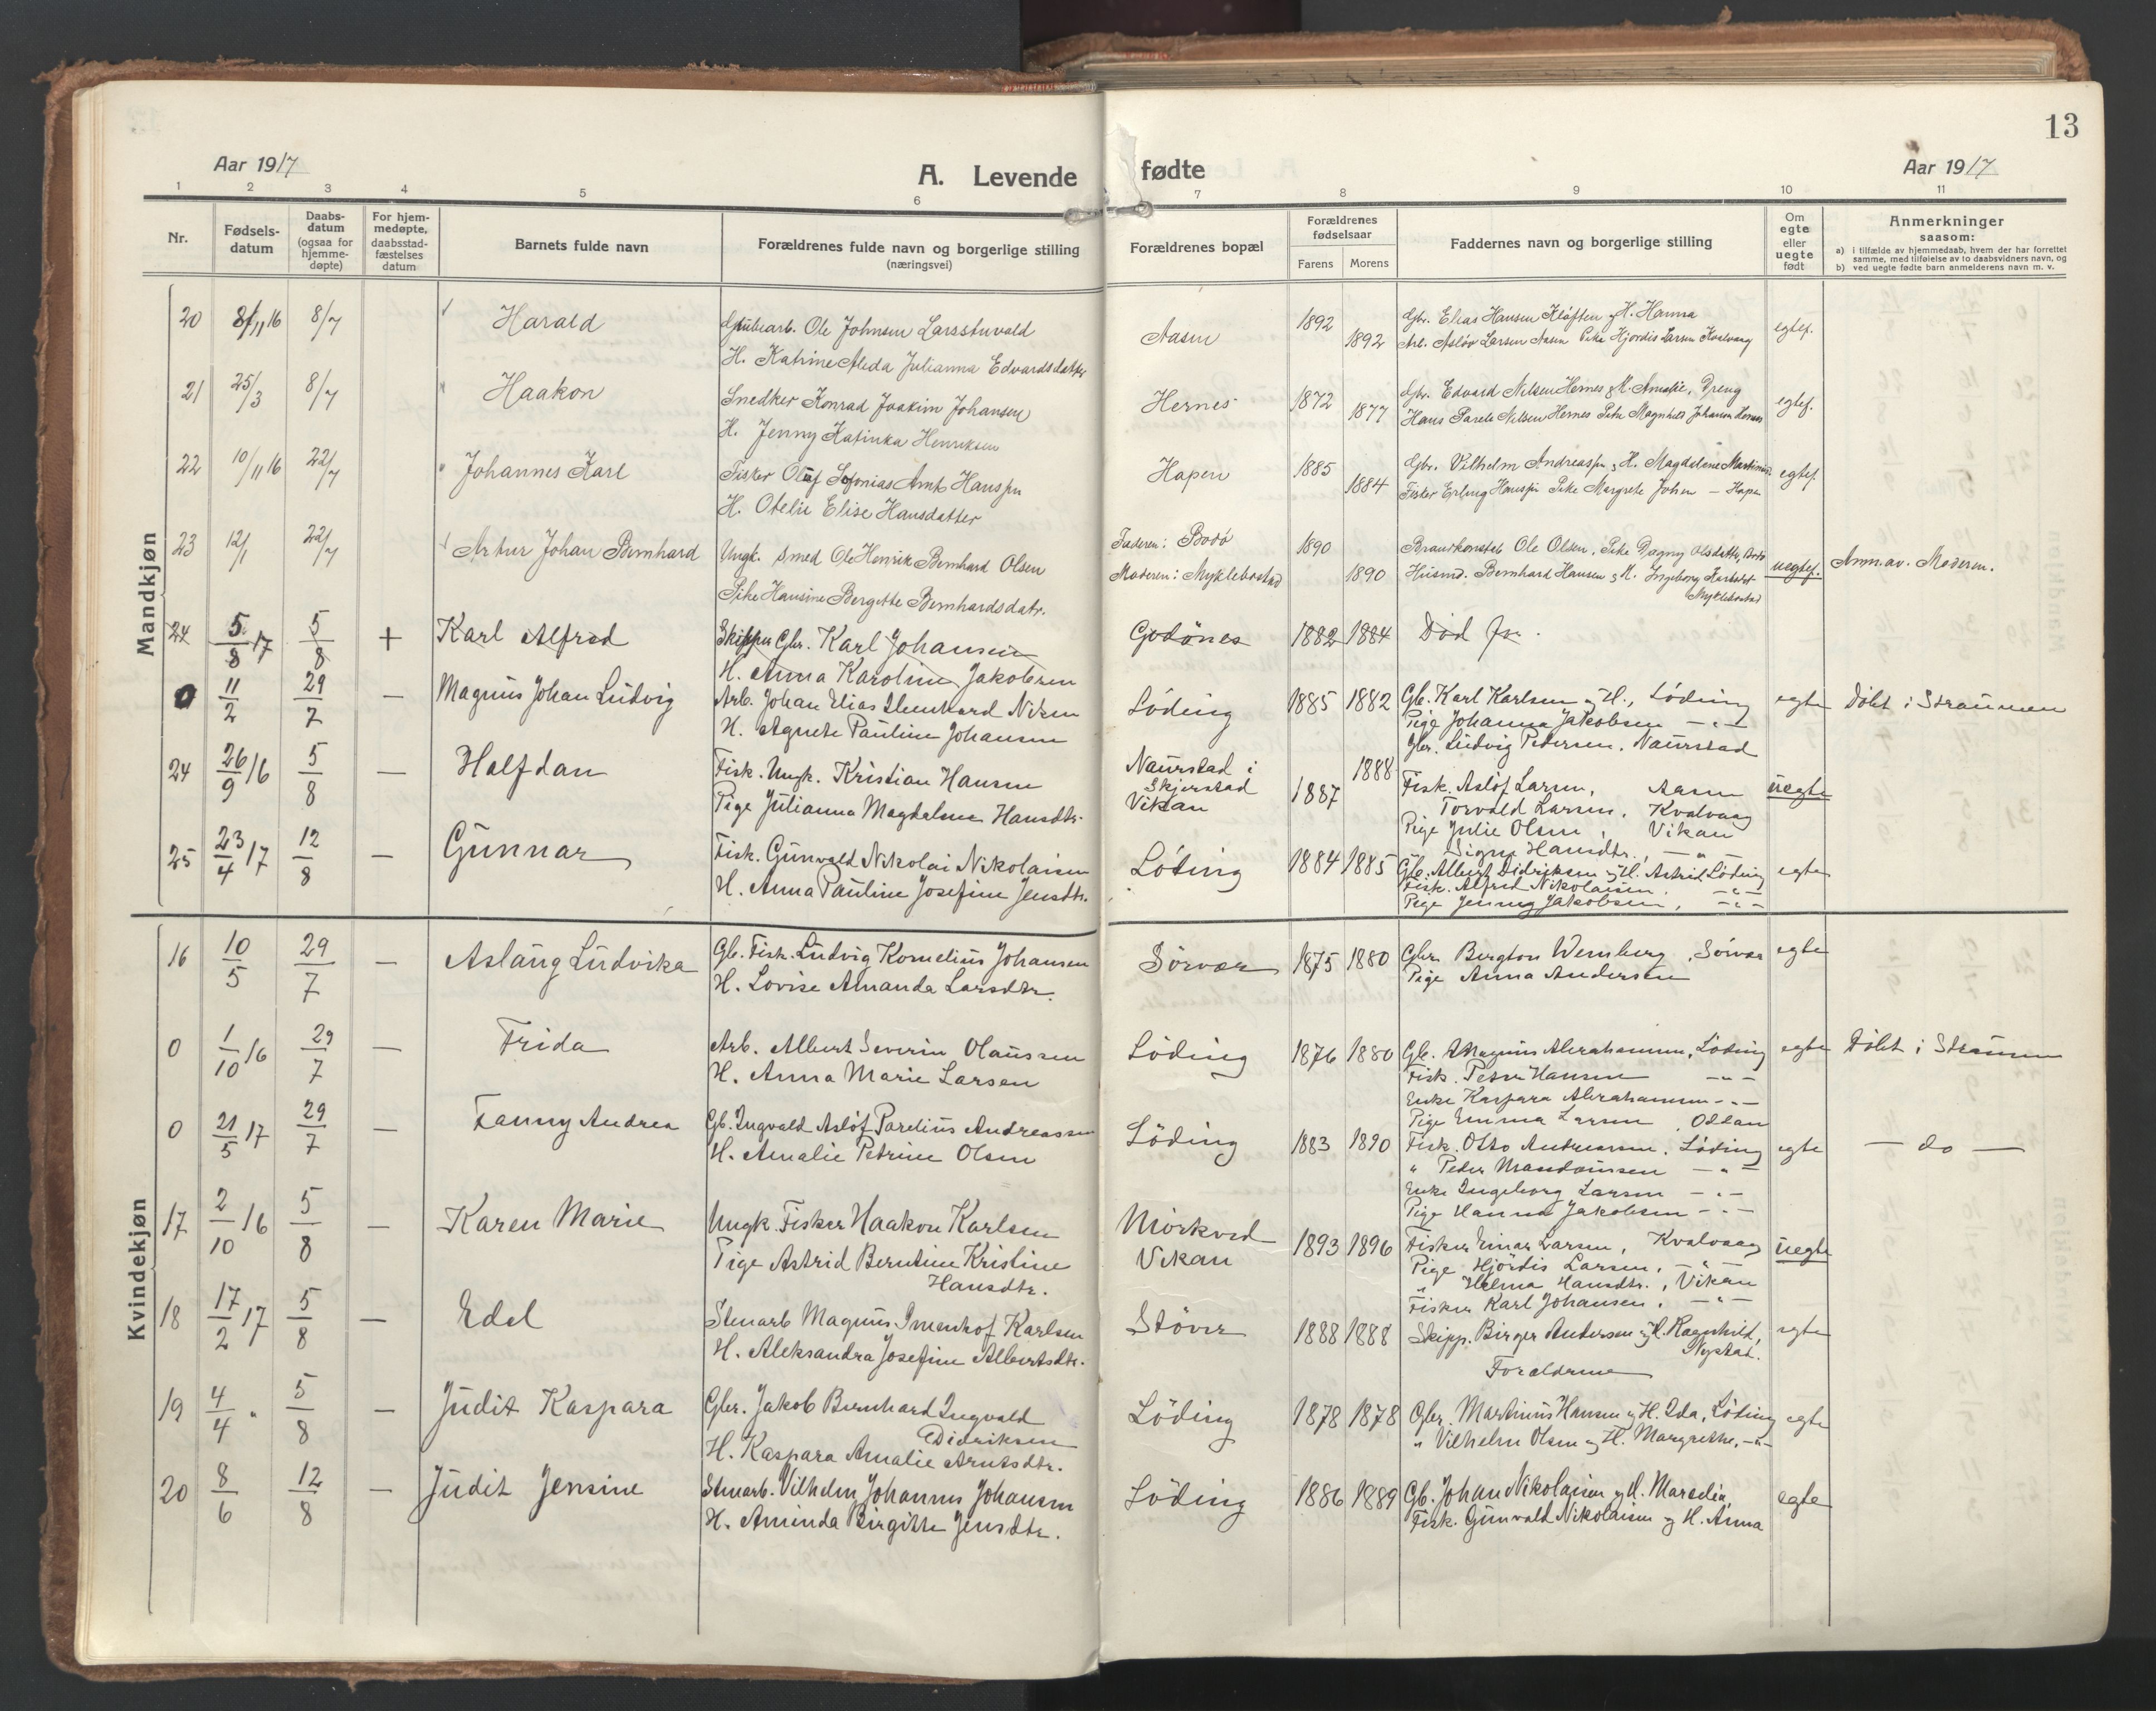 13
Aar 1917
A. Levende fødte
Aar 1917
1 2 3 4 5 6 7 8 9 10 11
Nr.
Fødsels-
datum
Daabs-
datum
(ogsaa for
hjemme-
døpte)
For hjem-
medøpte,
daabsstad-
fæstelses
datum
Barnets fulde navn
Forældrenes fulde navn og borgerlige stilling
(næringsvei)
Forældrenes bopæl
Forældrenes
fødselsaar
Farens Morens
Faddernes navn og borgerlige stilling
Om
egte
eller
uegte
født
Anmerkninger
saasom:
a) i tilfælde av hjemmedaab, hvem der har forrettet
samme, med tilføielse av to daabsvidners navn, og
b) ved uegte fødte barn anmelderens navn m. v.
Mandkjøn
20 8/11 16 8/7 Harald
Grubearb. Ole Johnsen Larsstuvald
H. Katrine Aleda Julianna Edvardsdatter
Aasen 1892 1892
Gbr. Elias Hansen Kløften og H. Hanna
Arb. Asløv Larsen Aasen Pike Hjordis Larsen Kvalvaag
egtef.
21 25/3 8/7 Haakon
Snedker Konrad Joakim Johansen
H. Jenny Katinka Henriksen
Hernes 1872 1877
Gbr. Edvard Nilsen Hernes, H. Amalie, Dreng
Hans Parele Nilsen Hernes Pike Magnhild Johansen Hernes
egtef.
22 10/11 16 22/7 Johannes Karl
Fisker Oluf Sofonias Arnt Hanssen
H. Otelie Elise Hansdatter
Hapen 1885 1884
Gbr. Vilhelm Andreassen, H. Magdelene
Fisker Erling Hanssen Pike Margrete Johsen — Hapen
egtef.
23 12/1 22/7 Artur Johan Bernhard
Ungk. Smed Ole Henrik Bernhard Olsen
Pike Hansine Bergette Bernhardsdatr.
Faderen: Bodø
Moderen: Myklebostad
1890 1890
Brandkonstab Ole Olsen, Pike Dagny Olsdatter, Bodø
Husmd. Bernhard Hansen, H. Ingeborg
Myklebostad
uegtef.
Anm. av. Moderen.
24 5/8 17 5/8 + Karl Alfred
Skipper Gbr. Karl Johansen
H. Anna Karoline Jakobsen
Godönes 1882 1884 Död
0 11/2 29/7 — Magnus Johan Ludvig
Arb. Johan Elias Nilsen
H. Agnete Pauline Johansen
Löding 1885 1882
Gb. Karl Karlsen og H., Löding
Pige Johanna Jakobsen — " —
Gbr. Ludvig Pedersen, Naurstad
egte Döbt i Straumen
24 26/9 16 5/8 — Halfdan
Fisk. Ungk. Kristian Hansen
Pige Julianna Magdalene Hansdtr.
Naurstad i
Skjerstad
Vikan
1887 1888
Fisk. Aslöf Larsen, Aasen
Torvald Larsen, Kvalvaag
Pige Julie Olsen, Vikan
Signe Hansdtr., — " —
uegte
25 23/4 17 12/8 — Gunnar
Fisk. Gunvald Nikolai Nikolaisen
H. Anna Pauline Josefine Jensdtr.
Löding 1884 1885
Gb. Albert Didriksen og H. Astrid, Löding
Fisk. Alfred Nikolaisen, — " —
Pige Jenny Jakobsen, — " —
egte
Kvindekjøn
16 10/5 29/7 — Aslaug Ludvika
Gb. Fisk. Ludvig Kornelius Johansen
H. Lovise Amanda Larsdtr.
Sörvær 1875 1880
Gbr. Bergton Wensberg, Sörvær
Pige Anna Andersen
egte
0 1/10 16 29/7 — Frida
Arb. Albert Severin Olaussen
H. Anna Marie Larsen
Löding 1876 1880
Gb. Magnus Abrahamsen, Löding
Fisk. Peter Hansen — " —
Enke Kaspara Abrahamsen — " —
Pige Emma Larsen, Oddan
egte Döbt i Straumen
0 21/5 17 29/7 — Fanny Andrea
Gb. Ingvald Aslöf Parelius Andreassen
H. Amalie Petrine Olsen
Löding 1883 1890
Fisk. Otto Andreassen, Löding
" Peder — " —
Enke Ingeborg Larsen — " —
Pige Hanna Jakobsen — " —
egte — do —
17 2/10 16 5/8 — Karen Marie
Ungk. Fisker Haakon Karlsen
Pige Astrid Berntine Kristine
Hansdtr.
Mörkved
Vikan
1893 1896
Fisker Einar Larsen, Kvalvaag
Pige Hjördis Larsen, — " —
" Helma Hansdtr., Vikan
Fisker Karl Johansen, — " —
uegte
18 17/2 17 5/8 — Edel
Stenarb Magnus Karlsen
H. Aleksandra Josefine Albertsdtr.
Stöver 1888 1888
Skipp. Birger Andersen og H. Ragnhild,
Nystad.
Forældrene
egte
19 4/4 " 5/8 — Judit Kaspara
Gbr. Jakob Bernhard Ingvald
Didriksen
H. Kaspara Amalie Arntsdtr.
Löding 1878 1878
Gbr. Martinus Hansen og H. Ida, Löding
" Vilhelm Olsen og H. Margrethe, — " —
egte
20 8/6 12/8 — Judit Jensine
Stenarb. Vilhelm Johannes Johansen
H. Aminda Birgitte Jensdtr.
Löding 1886 1889
Gb. Johan Nikolaisen og H. Maredia,
Fisk. Gunvald Nikolaisen og H. Anna
egte